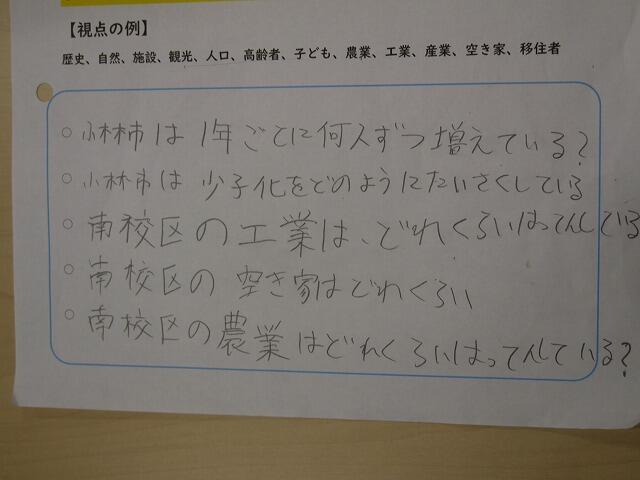 【視点の例】
歴史、自然、施設、観光、人口、高齢者、子ども、農業、工業、産業、空き家、移住者
○ 小林市は 1年ごとに何人ずつ増えている?
○ 小林市は 少子化をどのようにたいさくしている
○ 南校区の工業は、どれくらいはってんしている
○ 南校区の 空き家はどれくらい
○ 南校区の農業はどれくらいはってんしている?